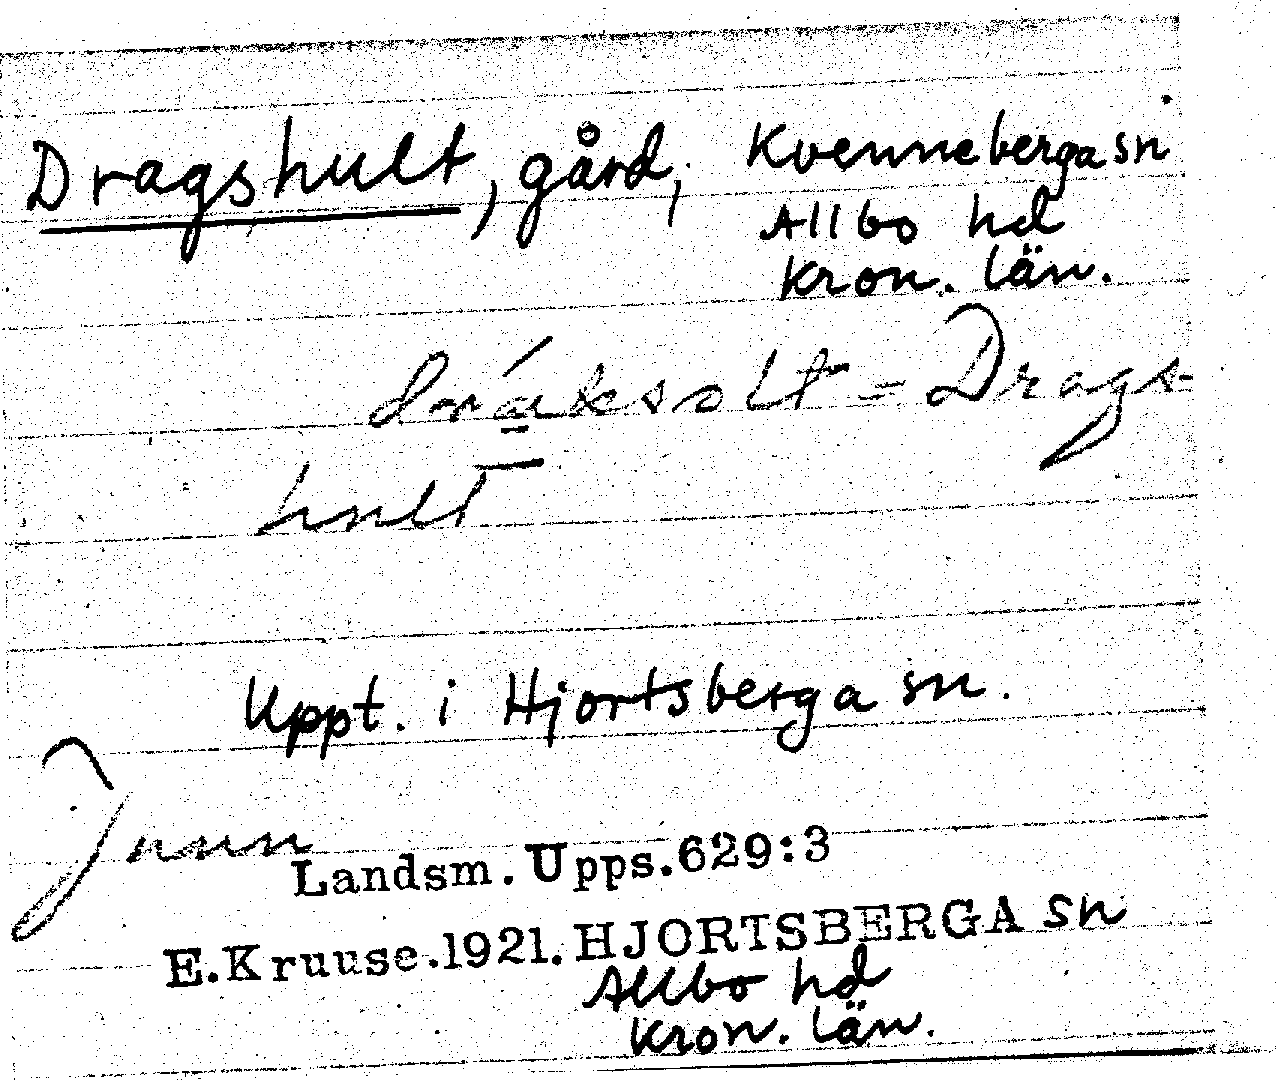 Dragshult, gård, Kvenneberga sn
Allbo hd
Kron. län.
dráksolt = Drags-
hult
Uppt. i Hjortsberga sn.
Landsm. Upps. 629:3
E. Kruuse. 1921. HJORTSBERGA sn
Allbo hd
Kron. län.